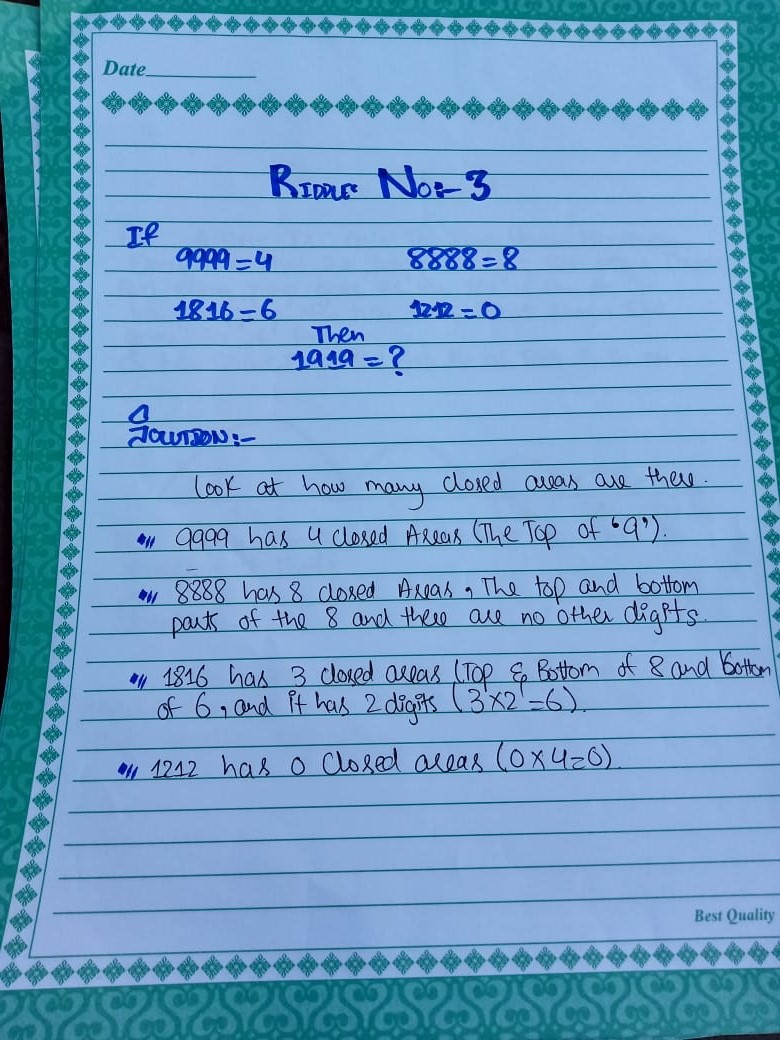 Date
RIDDLE No:- 3
If
9999=4 8888=8
1816=6 1212=0
Then
1919=?
SOLUTION:-
Look at how many closed areas are there.
9999 has 4 closed Areas (The Top of '9').
8888 has 8 closed Areas, The top and bottom
parts of the 8 and there are no other digits.
1816 has 3 closed areas (Top & Bottom of 8 and bottom
of 6, and it has 2 digits (3×2=6).
1212 has 0 closed areas (0×4=0).
Best Quality